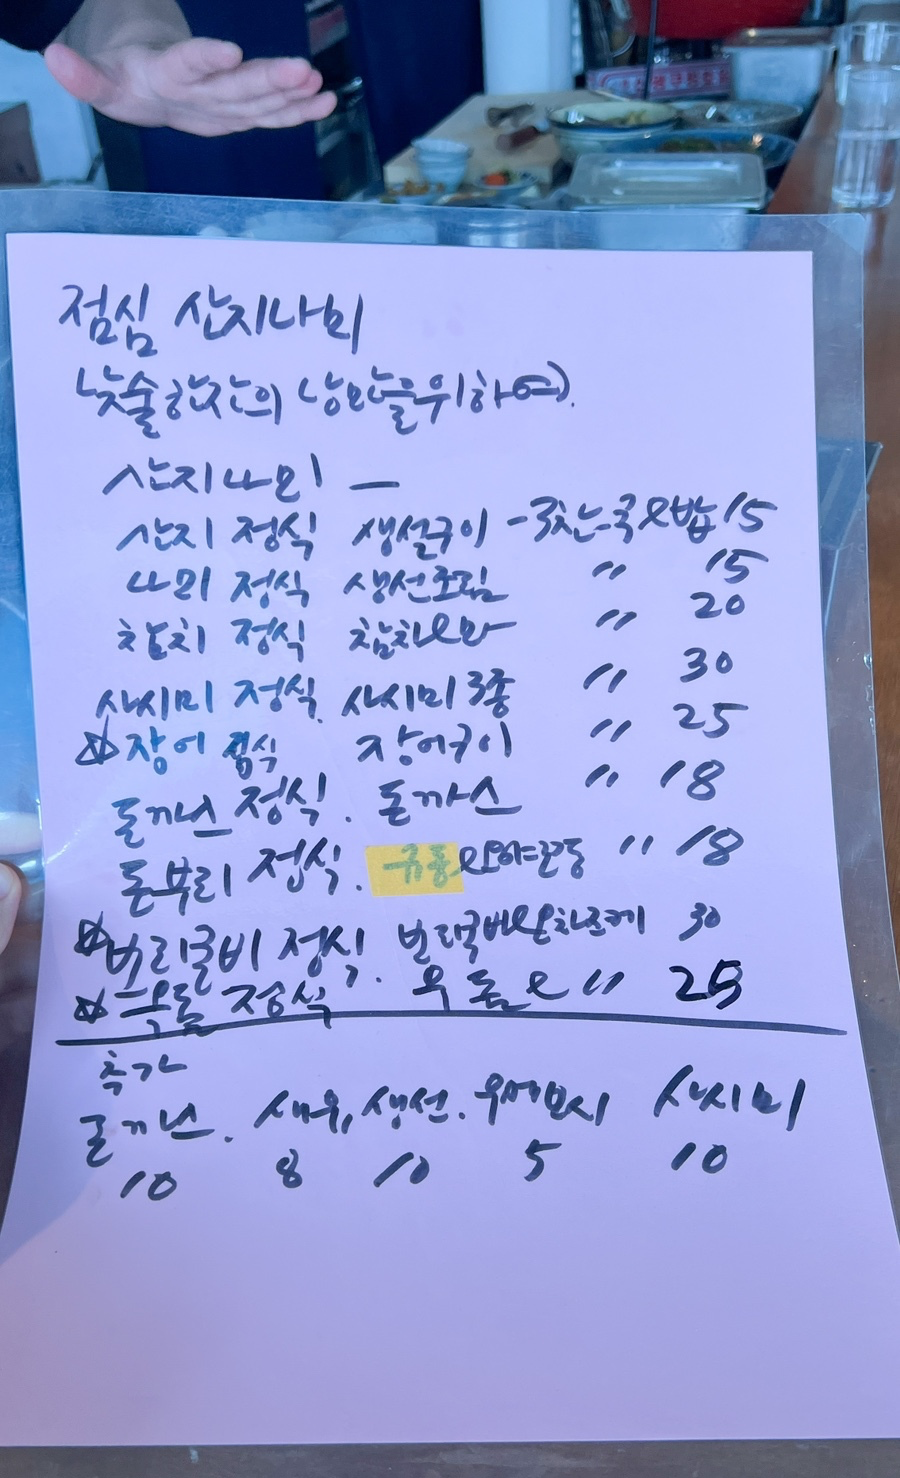 점심 산지나미
낮술한잔의 낭만을위하여).
산지나미 —
산지 정식 생선구이 - 3찬국&밥 15
나미 정식 생선조림 〃 15
참치 정식 참치 〃 20
사시미 정식. 사시미 3종 〃 30
☆장어 정식 장어구이 〃 25
돈까스 정식. 돈까스 〃 18
돈부리 정식. 규동 〃 18
☆보리굴비 정식. 보리굴비 30
☆ 정식. 〃 25
추가
새우, 생선. 사시미
10 8 10 5 10